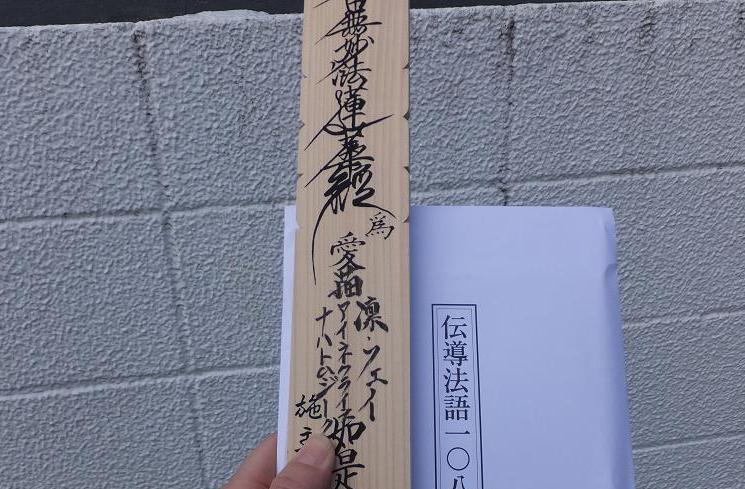 無妙法蓮華経
為
愛猫
凛・フェイ
アイネクライ
ナハトのジーク
如是
施主
伝導法語一〇八